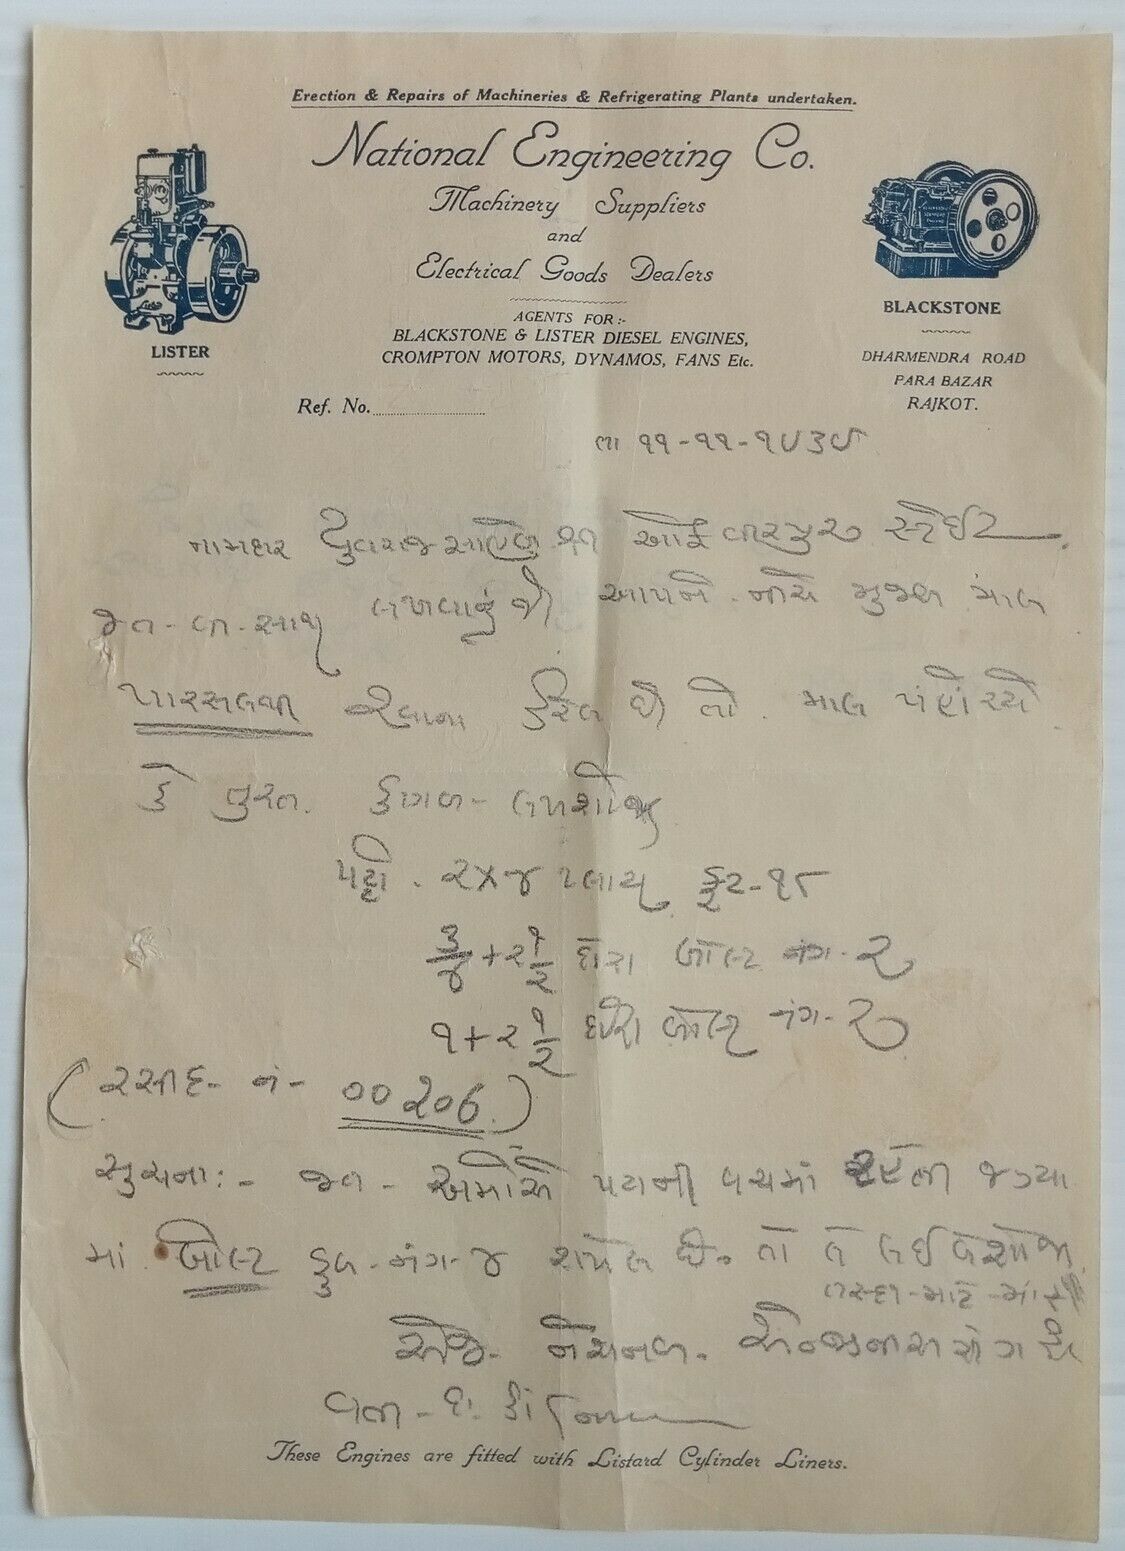 Erection & Repairs of Machineries & Refrigerating Plants undertaken.
National Engineering Co.
Machinery Suppliers
and
Electrical Goods Dealers
AGENTS FOR :-
BLACKSTONE & LISTER DIESEL ENGINES,
CROMPTON MOTORS, DYNAMOS, FANS Etc.
LISTER
BLACKSTONE
DHARMENDRA ROAD
PARA BAZAR
RAJKOT.
Ref. No.
તા ૧૧-૧૧-૧૯૩૯
નામદાર યુવરાજ સાહેબ ઓફ સ્ટેઈટ
જત લખવાનું જે આપને નીચે મુજબ માલ
પારસલથી રવાના કરેલ છે તો માલ પંહોંચ્યે
કે તુરત કાગળ લખશોજી
પટ્ટો ૨×૪ પ્લાય ફૂટ-૧૮
૩/૪+૨ ૧/૨ બોલ્ટ નંગ-૨
૧+૨ ૧/૨ બોલ્ટ નંગ-૨
(રસીદ નં- ૦૦૨૦૬)
સુચના:- જત પટાની વચમાં રહેલી જગ્યા
માં બોલ્ટ કુલ નંગ-૪ રાખેલ છે. તો તે લઈ લેશોજી
એજ નેશનલ એન્જીનીયરીંગ
વતી
These Engines are fitted with Listard Cylinder Liners.